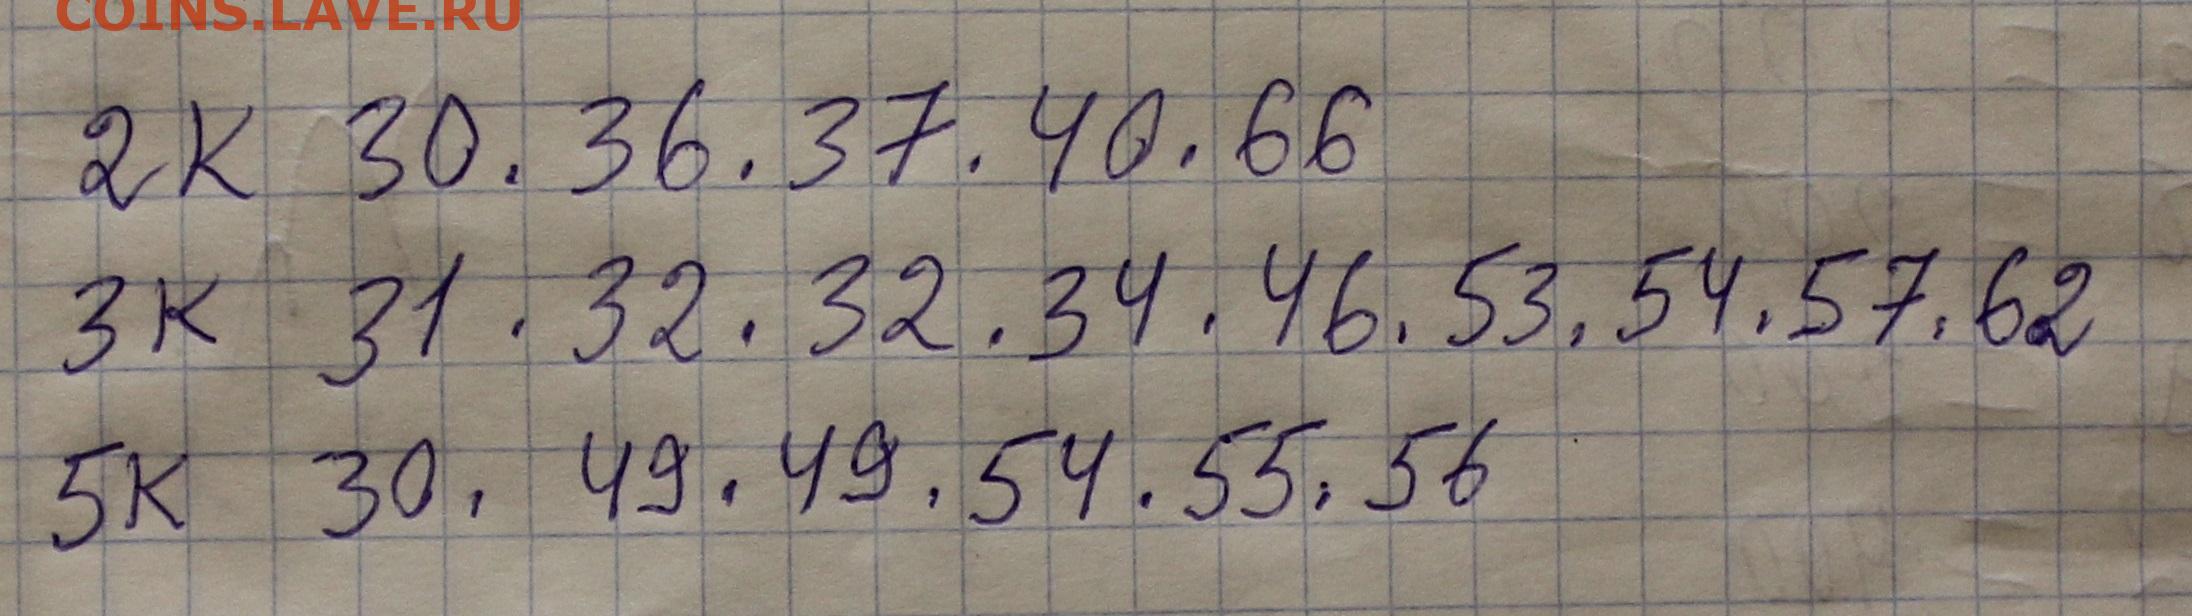 COINS.LAVE.RU
2к 30. 36. 37. 40. 66
3к 31. 32. 32. 34. 46. 53. 54. 57. 62
5к 30. 49. 49. 54. 55. 56